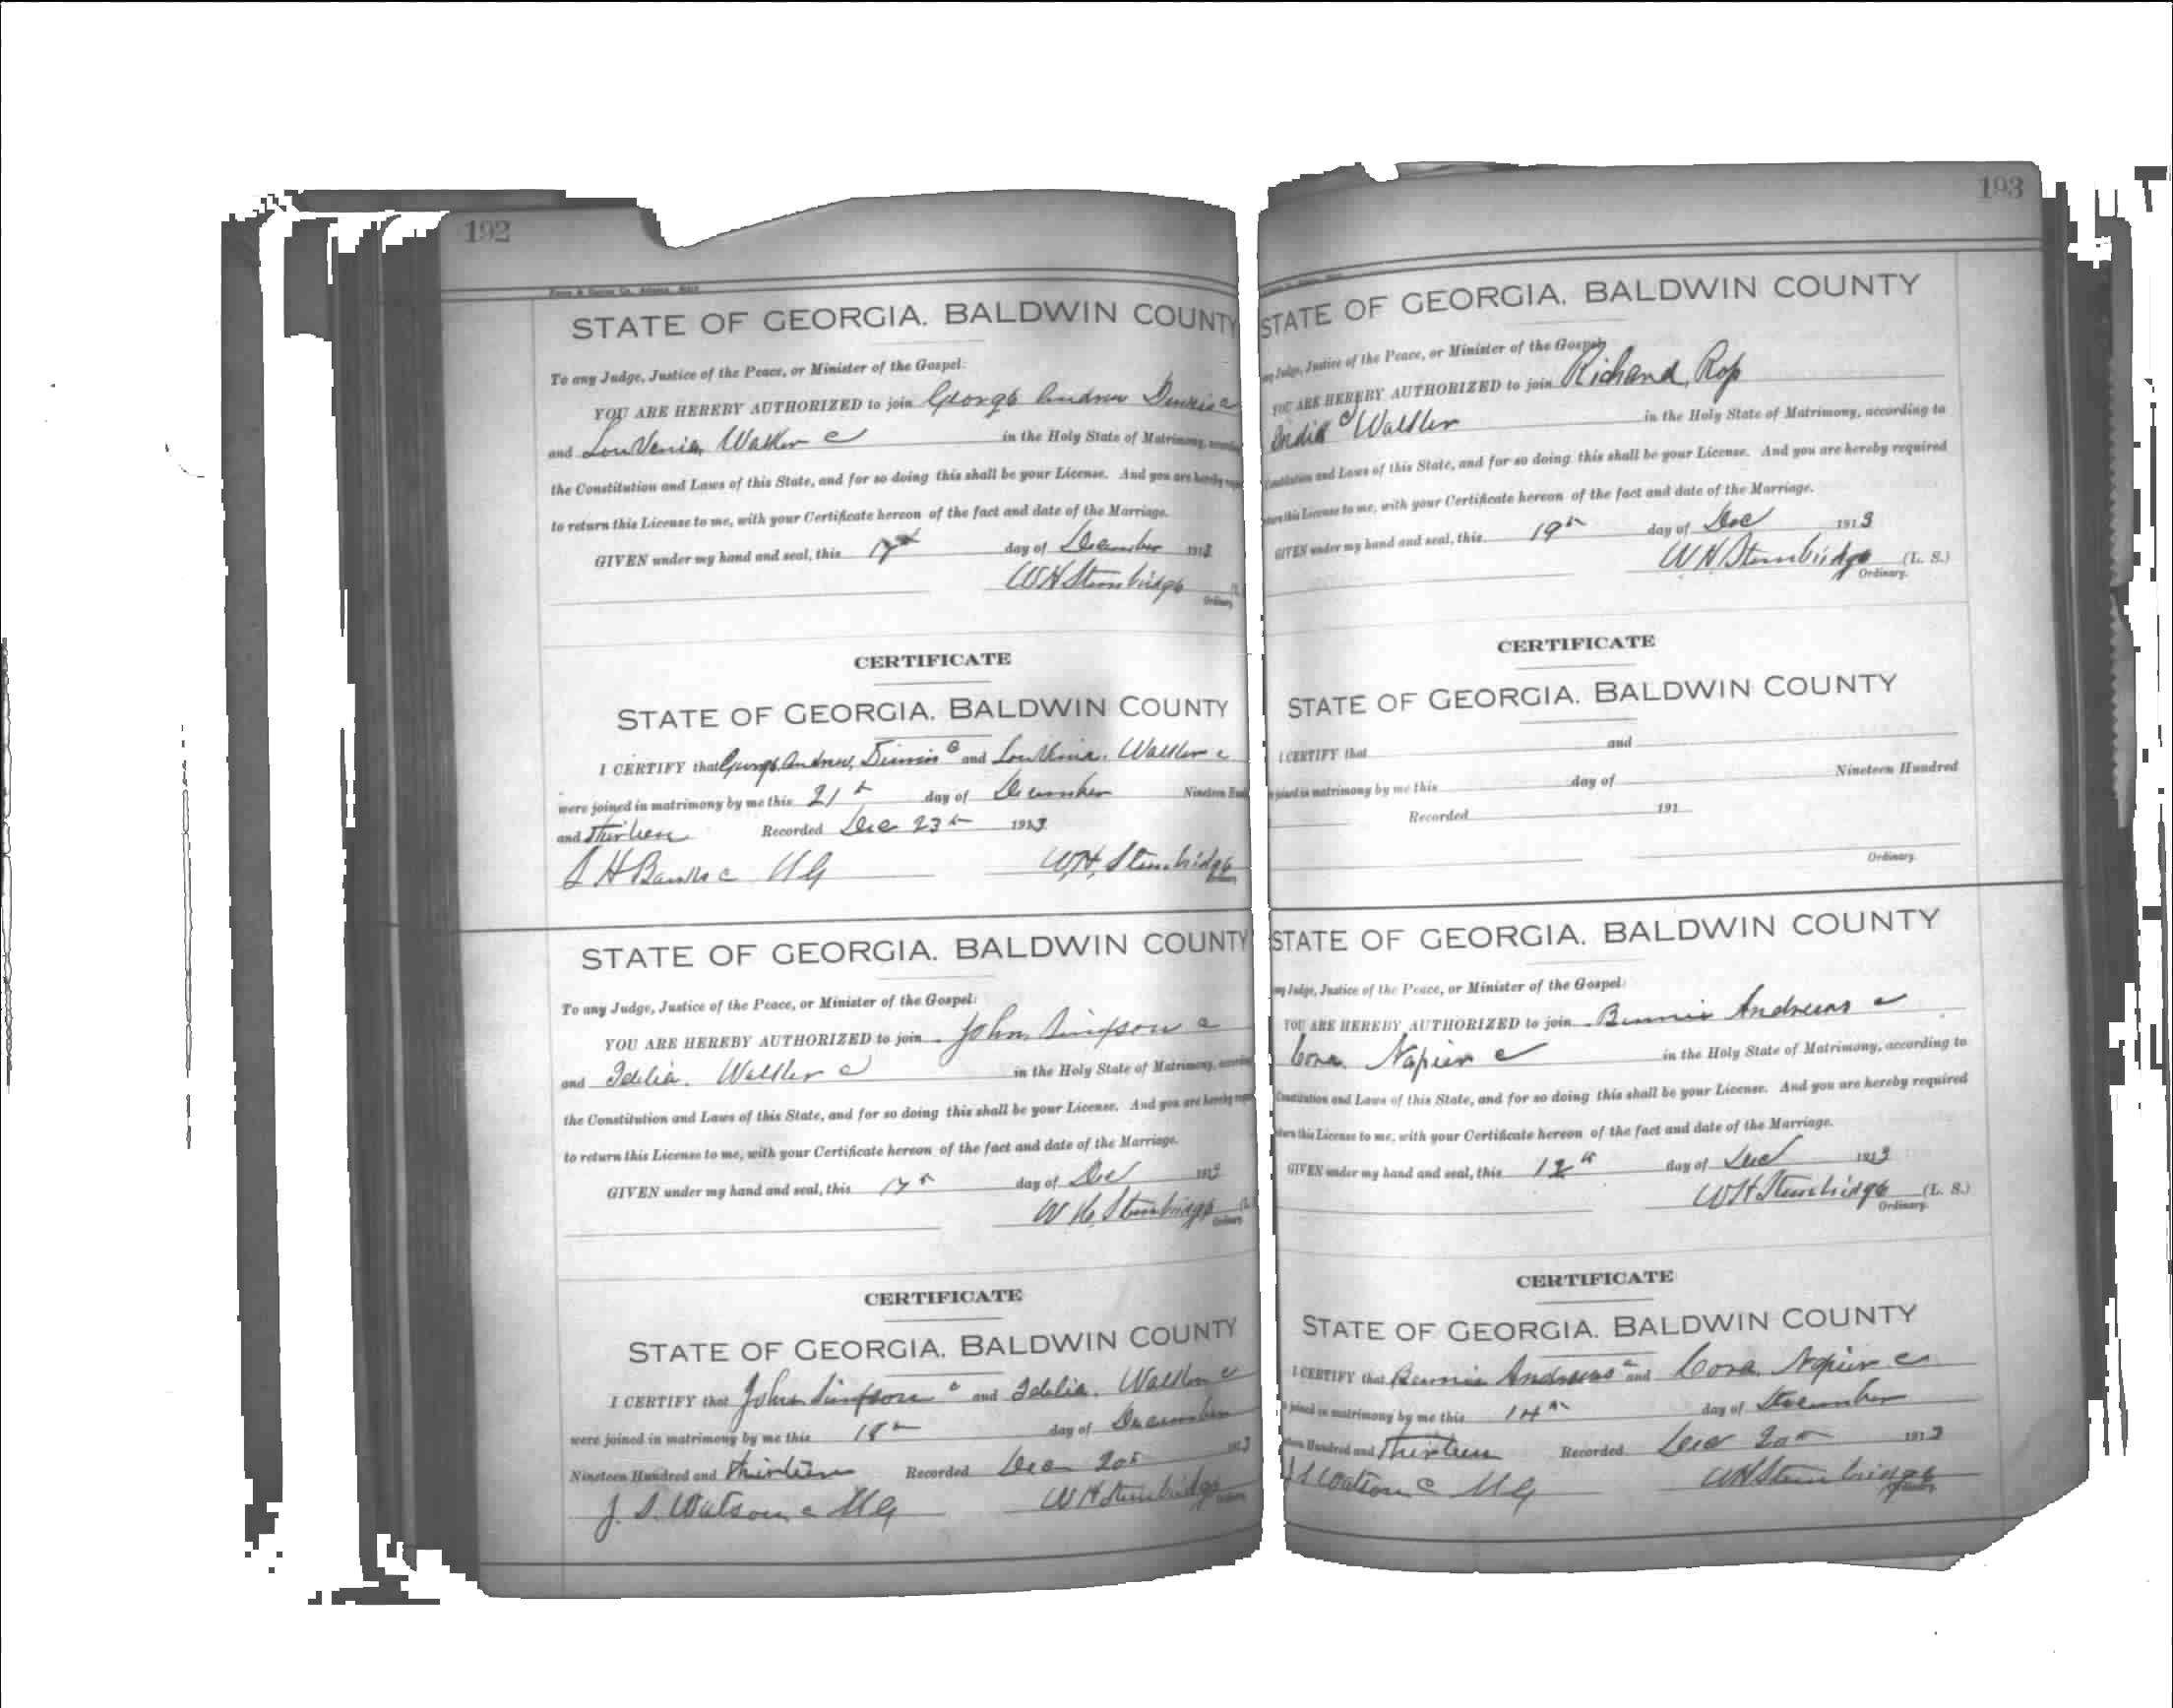 192
STATE OF GEORGIA. BALDWIN COUNTY
To any Judge, Justice of the Peace, or Minister of the Gospel:
YOU ARE HEREBY AUTHORIZED to join George Andrew Dennis c
and LouVenia Walker c in the Holy State of Matrimony,
the Constitution and Laws of this State, and for so doing this shall be your License. And you are hereby
to return this License to me, with your Certificate hereon of the fact and date of the Marriage.
GIVEN under my hand and seal, this 17th day of December 1913
W H Stembridge
Ordinary
CERTIFICATE
STATE OF GEORGIA. BALDWIN COUNTY
I CERTIFY that George Andrew, Dennis c and LouVenia Walker c
were joined in matrimony by me this 21st day of December Nineteen
and thirteen Recorded Dec 23 1913
H Banks c M G W,H, Stembridge
STATE OF GEORGIA. BALDWIN COUNTY
To any Judge, Justice of the Peace, or Minister of the Gospel:
YOU ARE HEREBY AUTHORIZED to join John Simpson c
and Idelia. Walker c in the Holy State of Matrimony,
the Constitution and Laws of this State, and for so doing this shall be your License. And you are hereby
to return this License to me, with your Certificate hereon of the fact and date of the Marriage.
GIVEN under my hand and seal, this 17th day of Dec 1913
W H. Stembridge
Ordinary
CERTIFICATE
STATE OF GEORGIA. BALDWIN COUNTY
I CERTIFY that John Simpson c and Idelia. Walker c
were joined in matrimony by me this 18th day of December
Nineteen Hundred and thirteen Recorded Dec 20th 1913
J. S. Watson c M G W H Stembridge
193
STATE OF GEORGIA. BALDWIN COUNTY
Judge, Justice of the Peace, or Minister of the Gospel:
YOU ARE HEREBY AUTHORIZED to join Richard
India Walker in the Holy State of Matrimony, according to
Constitution and Laws of this State, and for so doing this shall be your License. And you are hereby required
this License to me, with your Certificate hereon of the fact and date of the Marriage.
GIVEN under my hand and seal, this 19th day of Dec 1913
W H Stembridge (L. S.)
Ordinary.
CERTIFICATE
STATE OF GEORGIA. BALDWIN COUNTY
I CERTIFY that and
joined in matrimony by me this day of Nineteen Hundred
Recorded 191
Ordinary.
STATE OF GEORGIA. BALDWIN COUNTY
Judge, Justice of the Peace, or Minister of the Gospel:
YOU ARE HEREBY AUTHORIZED to join Bennie Andrews c
Cora. Napier c in the Holy State of Matrimony, according to
Constitution and Laws of this State, and for so doing this shall be your License. And you are hereby required
this License to me, with your Certificate hereon of the fact and date of the Marriage.
GIVEN under my hand and seal, this day of Dec 1913
W H Stembridge (L. S.)
Ordinary.
CERTIFICATE
STATE OF GEORGIA. BALDWIN COUNTY
I CERTIFY that Bennie Andrews c and Cora. Napier c
joined in matrimony by me this 14th day of December
Hundred and Thirteen Recorded Dec 20th 1913
J S Watson c M G W H Stembridge